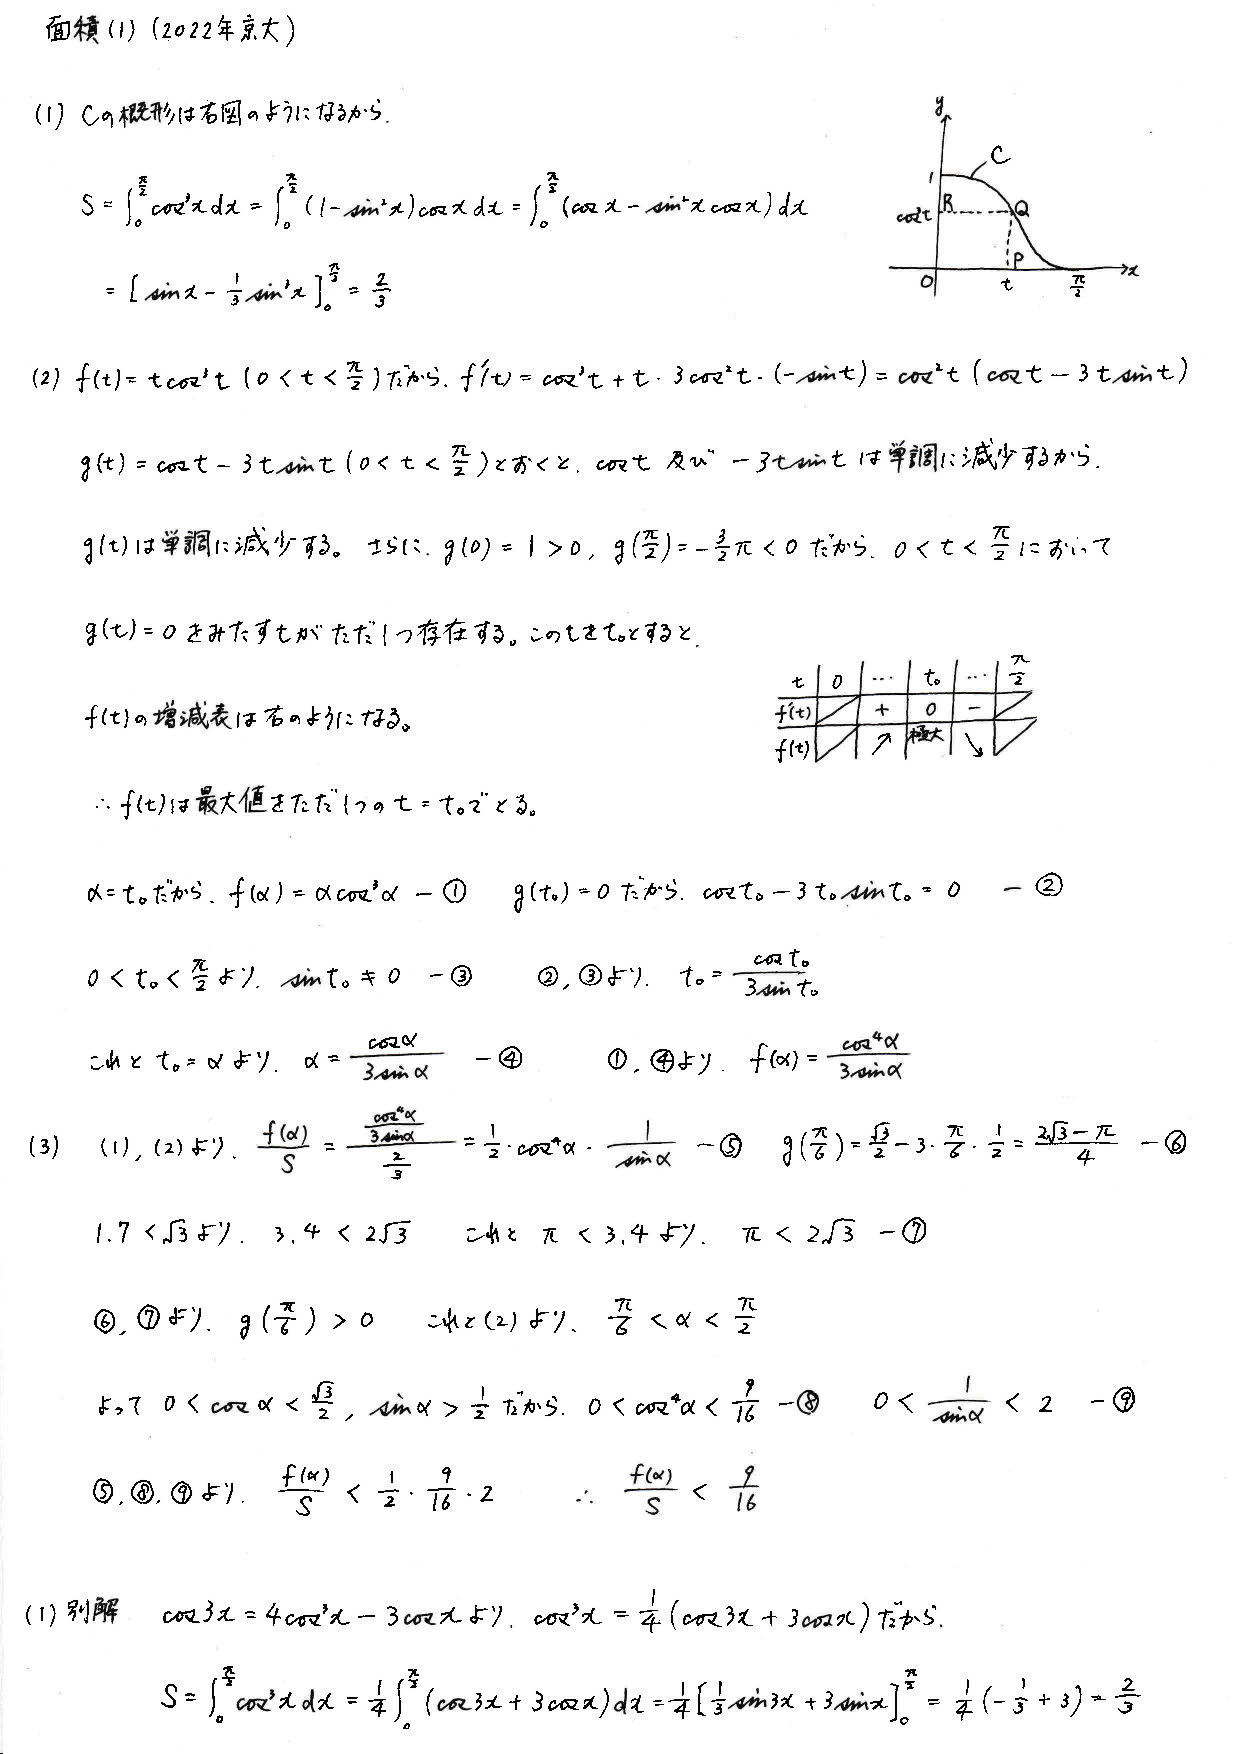 面積(1)(2022年京大)
(1) Cの概形は右図のようになるから.
y
C
1
cos³t
R
Q
P
O
t
π/2
x
S = ∫₀^{π/2} cos³x dx = ∫₀^{π/2} (1-sin²x)cosx dx = ∫₀^{π/2} (cosx - sin²x cosx)dx
= [sinx - 1/3 sin³x]₀^{π/2} = 2/3
(2) f(t) = t cos³t (0 < t < π/2)だから. f'(t) = cos³t + t・3cos²t・(-sint) = cos²t (cost - 3t sint)
g(t) = cost - 3t sint (0 < t < π/2)とおくと. cost 及び -3t sint は単調に減少するから.
g(t)は単調に減少する。さらに. g(0) = 1 > 0, g(π/2) = -3/2 π < 0 だから. 0 < t < π/2 において
g(t) = 0 をみたす t がただ1つ存在する。この t を t₀とすると.
f(t)の増減表は右のようになる。
t 0 … t₀ … π/2
f'(t) + 0 -
f(t) ↗ 極大 ↘
∴ f(t)は最大値をただ1つの t = t₀でとる。
α = t₀だから. f(α) = α cos³α - ① g(t₀) = 0 だから. cost₀ - 3t₀ sint₀ = 0 - ②
0 < t₀ < π/2 より. sint₀ ≠ 0 - ③ ②, ③より. t₀ = cost₀/3sint₀
これと t₀ = α より. α = cosα/3sinα - ④ ①, ④より. f(α) = cos⁴α/3sinα
(3) (1), (2)より. f(α)/S = (cos⁴α/3sinα)/(2/3) = 1/2・cos⁴α・1/sinα - ⑤ g(π/6) = √3/2 - 3・π/6・1/2 = (2√3-π)/4 - ⑥
1.7 < √3より. 3.4 < 2√3 これと π < 3.4 より. π < 2√3 - ⑦
⑥, ⑦より. g(π/6) > 0 これと(2)より. π/6 < α < π/2
よって 0 < cosα < √3/2, sinα > 1/2 だから. 0 < cos⁴α < 9/16 - ⑧ 0 < 1/sinα < 2 - ⑨
⑤, ⑧, ⑨より. f(α)/S < 1/2・9/16・2 ∴ f(α)/S < 9/16
(1)別解 cos3x = 4cos³x - 3cosx より. cos³x = 1/4 (cos3x + 3cosx)だから.
S = ∫₀^{π/2} cos³x dx = 1/4 ∫₀^{π/2} (cos3x + 3cosx)dx = 1/4 [1/3 sin3x + 3sinx]₀^{π/2} = 1/4 (-1/3 + 3) = 2/3